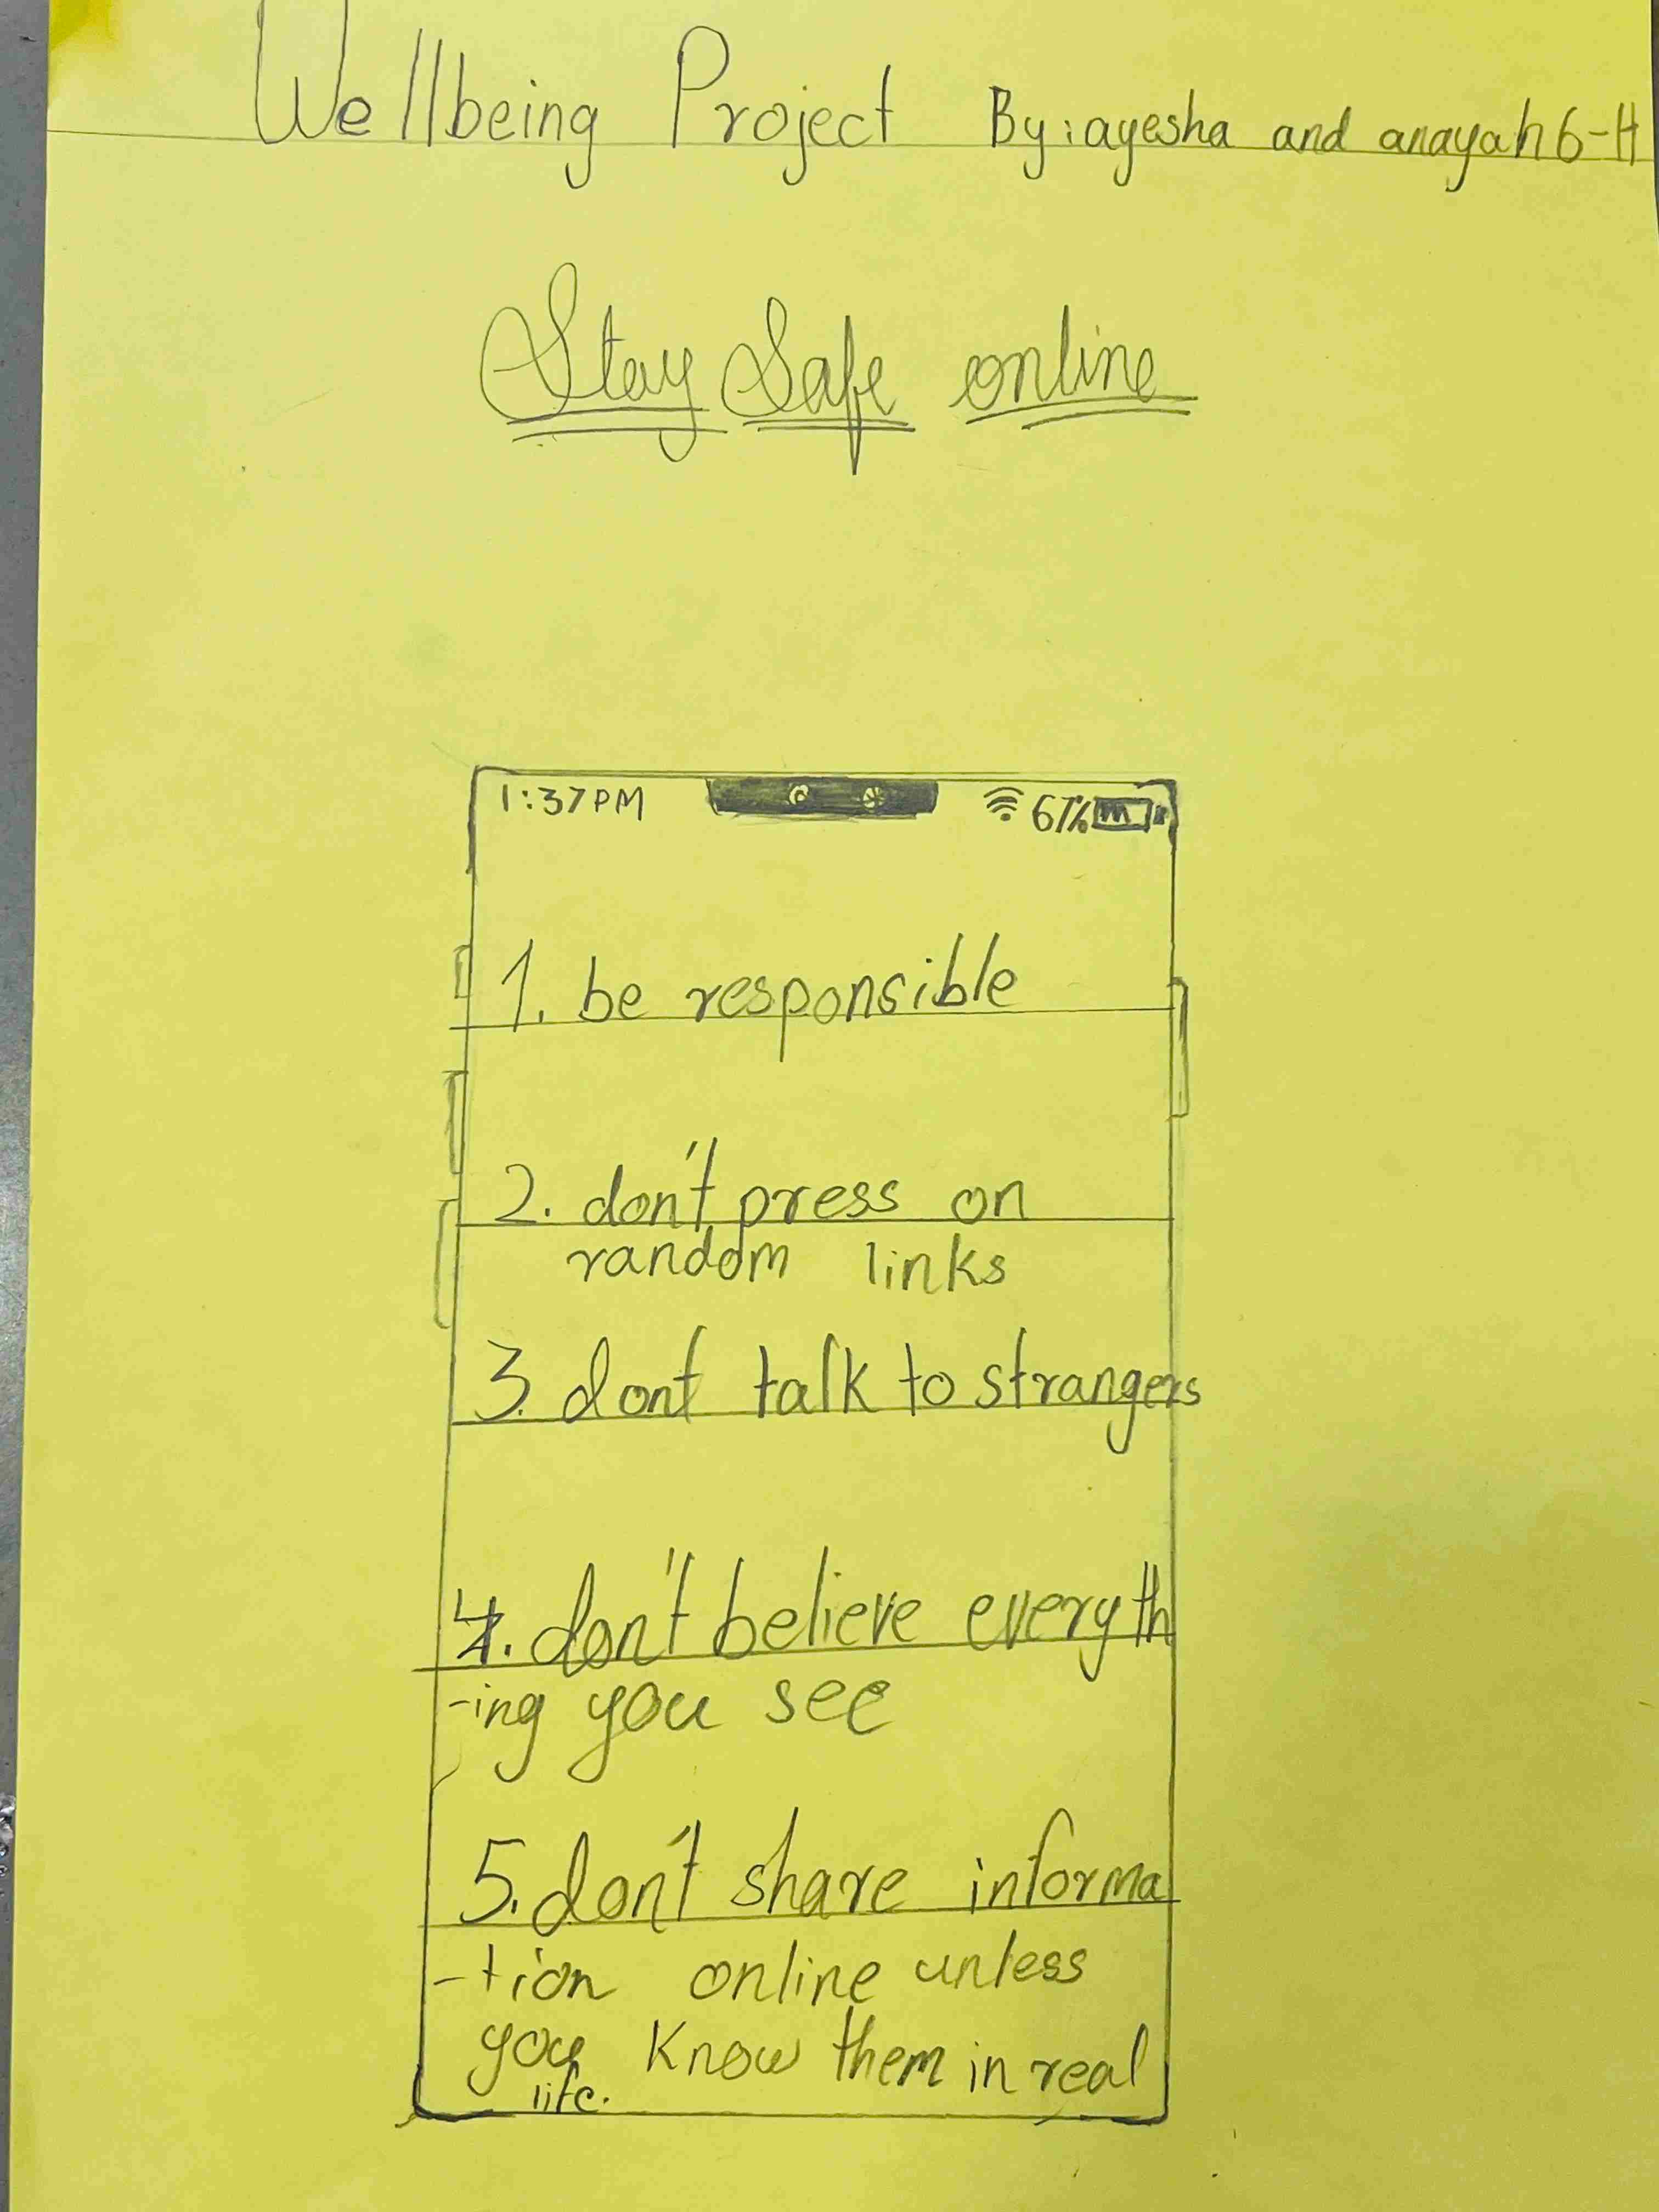 Wellbeing Project By: ayesha and anayah 6-H
Stay Safe online
1:37PM 67%
1. be responsible
2. don't press on
random links
3. dont talk to strangers
4. don't believe everyth
-ing you see
5. don't share informa
-tion online unless
you know them in real
life.